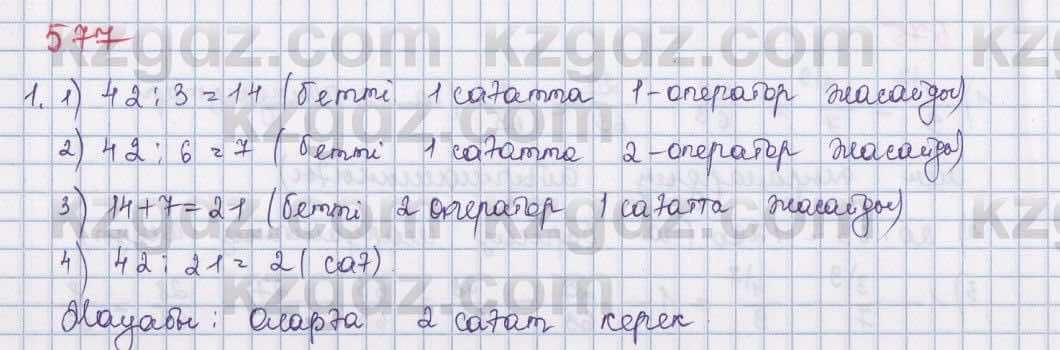 577
1. 1) 42 : 3 = 14 (бетті 1 сағатта 1-оператор жасайды)
2) 42 : 6 = 7 (бетті 1 сағатта 2-оператор жасайды)
3) 14 + 7 = 21 (бетті 2 оператор 1 сағатта жасайды)
4) 42 : 21 = 2 (сағ).
Жауабы: оларға 2 сағат керек.